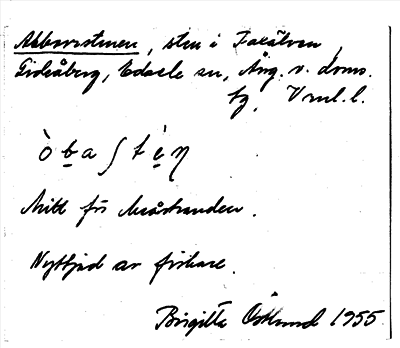 Abborrstenen, sten i Faxälven,
Gideåberg, Edsele sn, Ång. v. doms.
tg, Vnl. l.
ò b a ʃ t è ŋ
Mitt för Måstranden.
Nyttjad av fiskare.
Birgitta Östlund 1955